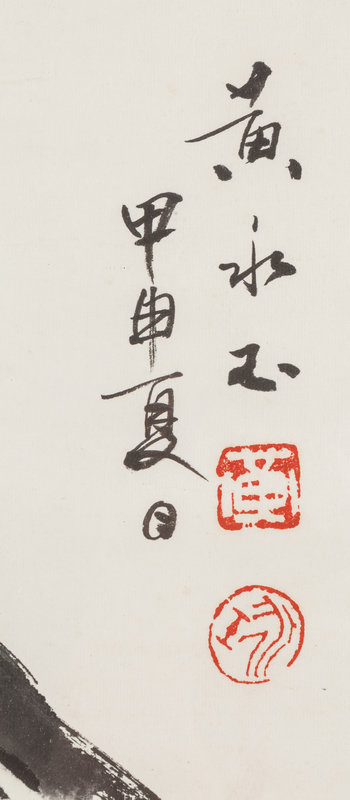 黄永玉
甲申夏日
黄